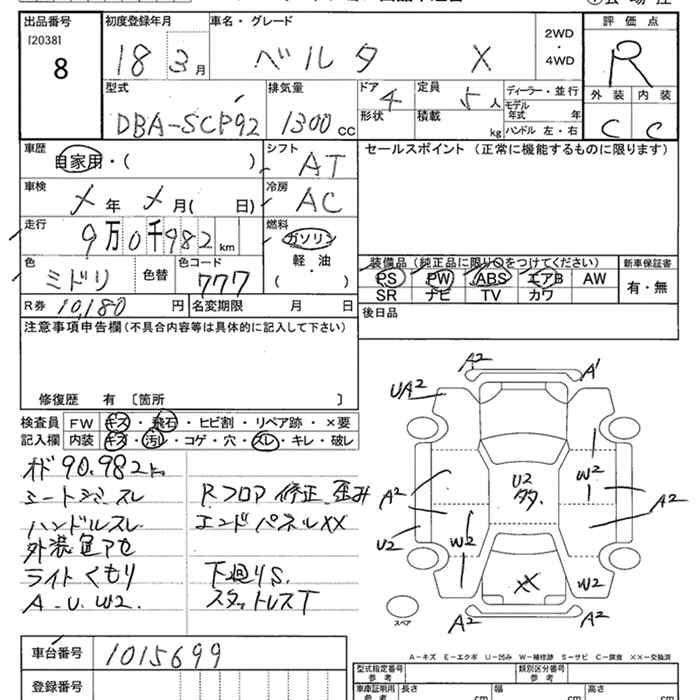 出品番号
[2038]
8
初度登録年月
18 3月
車名・グレード
ベルタ X
2WD
・
4WD
評価点
R
外装 内装
C C
型式
DBA-SCP92
排気量
1300 cc
ドア
4
形状
定員
5人
積載
kg
ディーラー・並行
モデル
年式 年
ハンドル 左・右
車歴
自家用・( )
シフト
AT
セールスポイント (正常に機能するものに限ります)
車検
メ年 メ月( 日)
冷房
AC
走行
9万0千982km
燃料
ガソリン
軽・油
( )
色
ミドリ
色替
色コード
777
装備品(純正品に限り○をつけてください)
PS PW ABS エアB AW
SR ナビ TV カワ
新車保証書
有・無
R券 10,180円
名変期限 月 日
後日品
注意事項申告欄(不具合内容等は具体的に記入して下さい)
修復歴 有 〔箇所 〕
検査員
記入欄
FW キズ・飛石・ヒビ割・リペア跡・×要
内装 キズ・汚レ・コゲ・穴・スレ・キレ・破レ
オド 90,982km
シートシミ スレ
ハンドルスレ
外装色アセ
ライトくもり
A.U.W2.
Rフロア修正 歪み
エンドパネルXX
下廻りS.
スタットレスT
A2
A1
UA2
W2
U2
タタ
A2
A2
U2
W2
XX
W2
A2
A2
スペア
A-キズ E-エクボ U-凹み W-補修跡 S-サビ C-腐食 XX-交換済
車台番号
1015699
登録番号
型式指定番号
参考
類別区分番号
参考
車庫証明用
参考
長さ
cm
幅
cm
高さ
cm